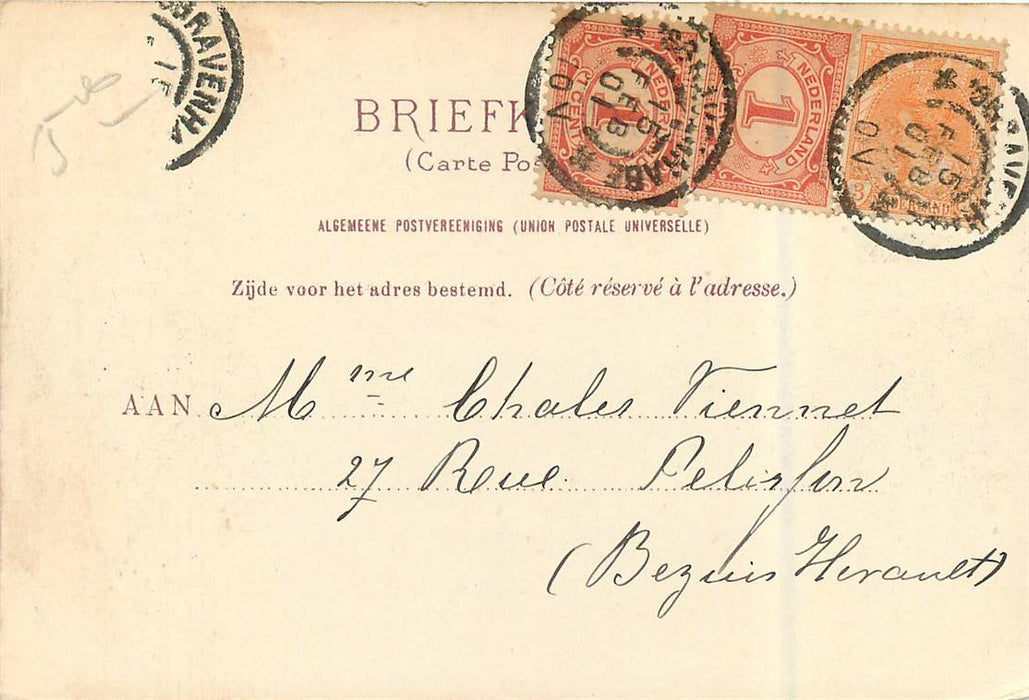 BRIEFK
(Carte Pos
ALGEMEENE POSTVEREENIGING (UNION POSTALE UNIVERSELLE)
Zijde voor het adres bestemd. (Côté réservé à l'adresse.)
AAN Mme Chales Viennet
27 Rue Pelisson
(Bezuis Herault)
GRAVENHA
1
NEDERLAND
1 CENT
1
NEDERLAND
3
15
FEB
01
15
FEB
01